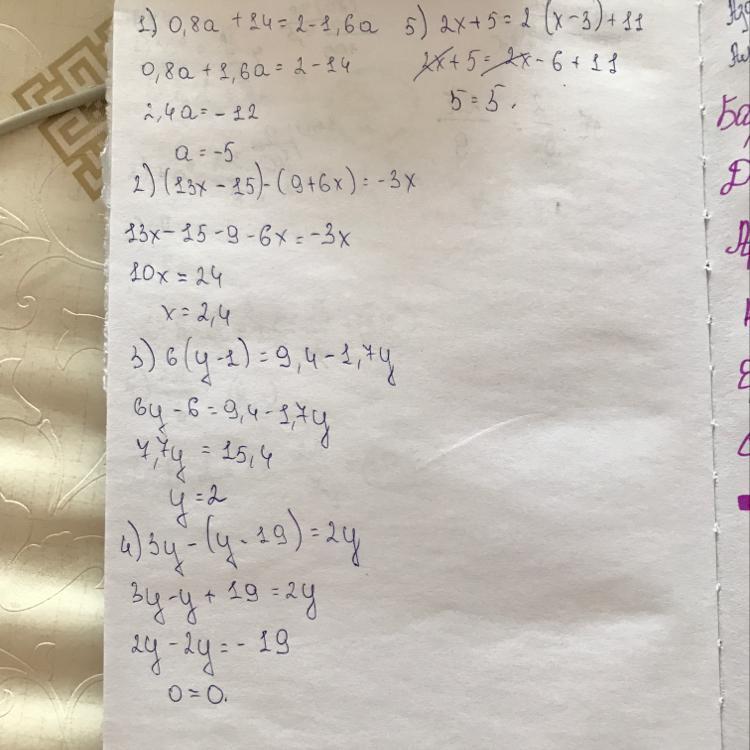 1) 0,8a + 14 = 2 - 1,6a
0,8a + 1,6a = 2 - 14
2,4a = - 12
a = -5
2) (13x - 15) - (9 + 6x) = -3x
13x - 15 - 9 - 6x = -3x
10x = 24
x = 2,4
3) 6(y - 1) = 9,4 - 1,7y
6y - 6 = 9,4 - 1,7y
7,7y = 15,4
y = 2
4) 3y - (y - 19) = 2y
3y - y + 19 = 2y
2y - 2y = - 19
0 = 0.
5) 2x + 5 = 2 (x - 3) + 11
2x + 5 = 2x - 6 + 11
5 = 5.
Ба
Д